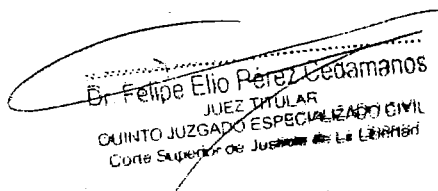 Dr. Felipe Elio Pérez Cedamanos
JUEZ TITULAR
QUINTO JUZGADO ESPECIALIZADO CIVIL
Corte Superior de Justicia de La Libertad